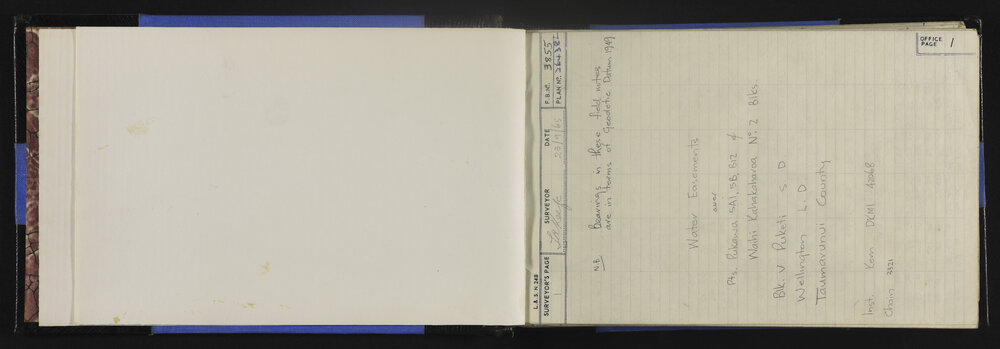 OFFICE PAGE 1
L. & S. N. 24B
SURVEYOR'S PAGE
SURVEYOR
DATE 23/9/65
F.B. Nº. 3855
PLAN Nº. 26438
N.B. Bearings in these field notes
are in terms of Geodetic Datum 1949
Water Easements
over
Pts. Pukawa 5A1, 5B, B12 &
Waihi Kahakaharoa Nº. 2 Blks.
Blk. V Puketi S. D
Wellington L. D
Taumarunui County
Inst. Kern DKM1 42068
Chain 3321